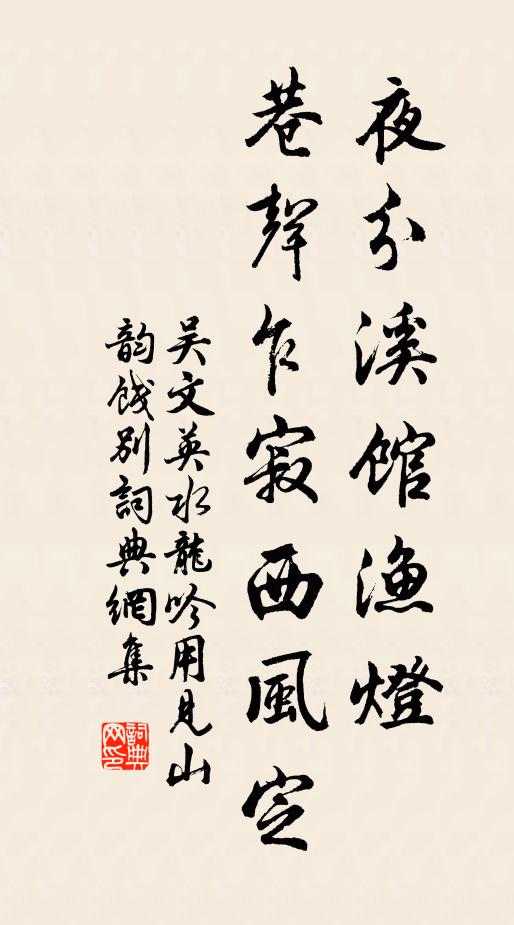 夜分溪館漁燈
巷聲乍寂西風定
吴文英水龍吟用見山
韵餞别詞典網集
詞典网印